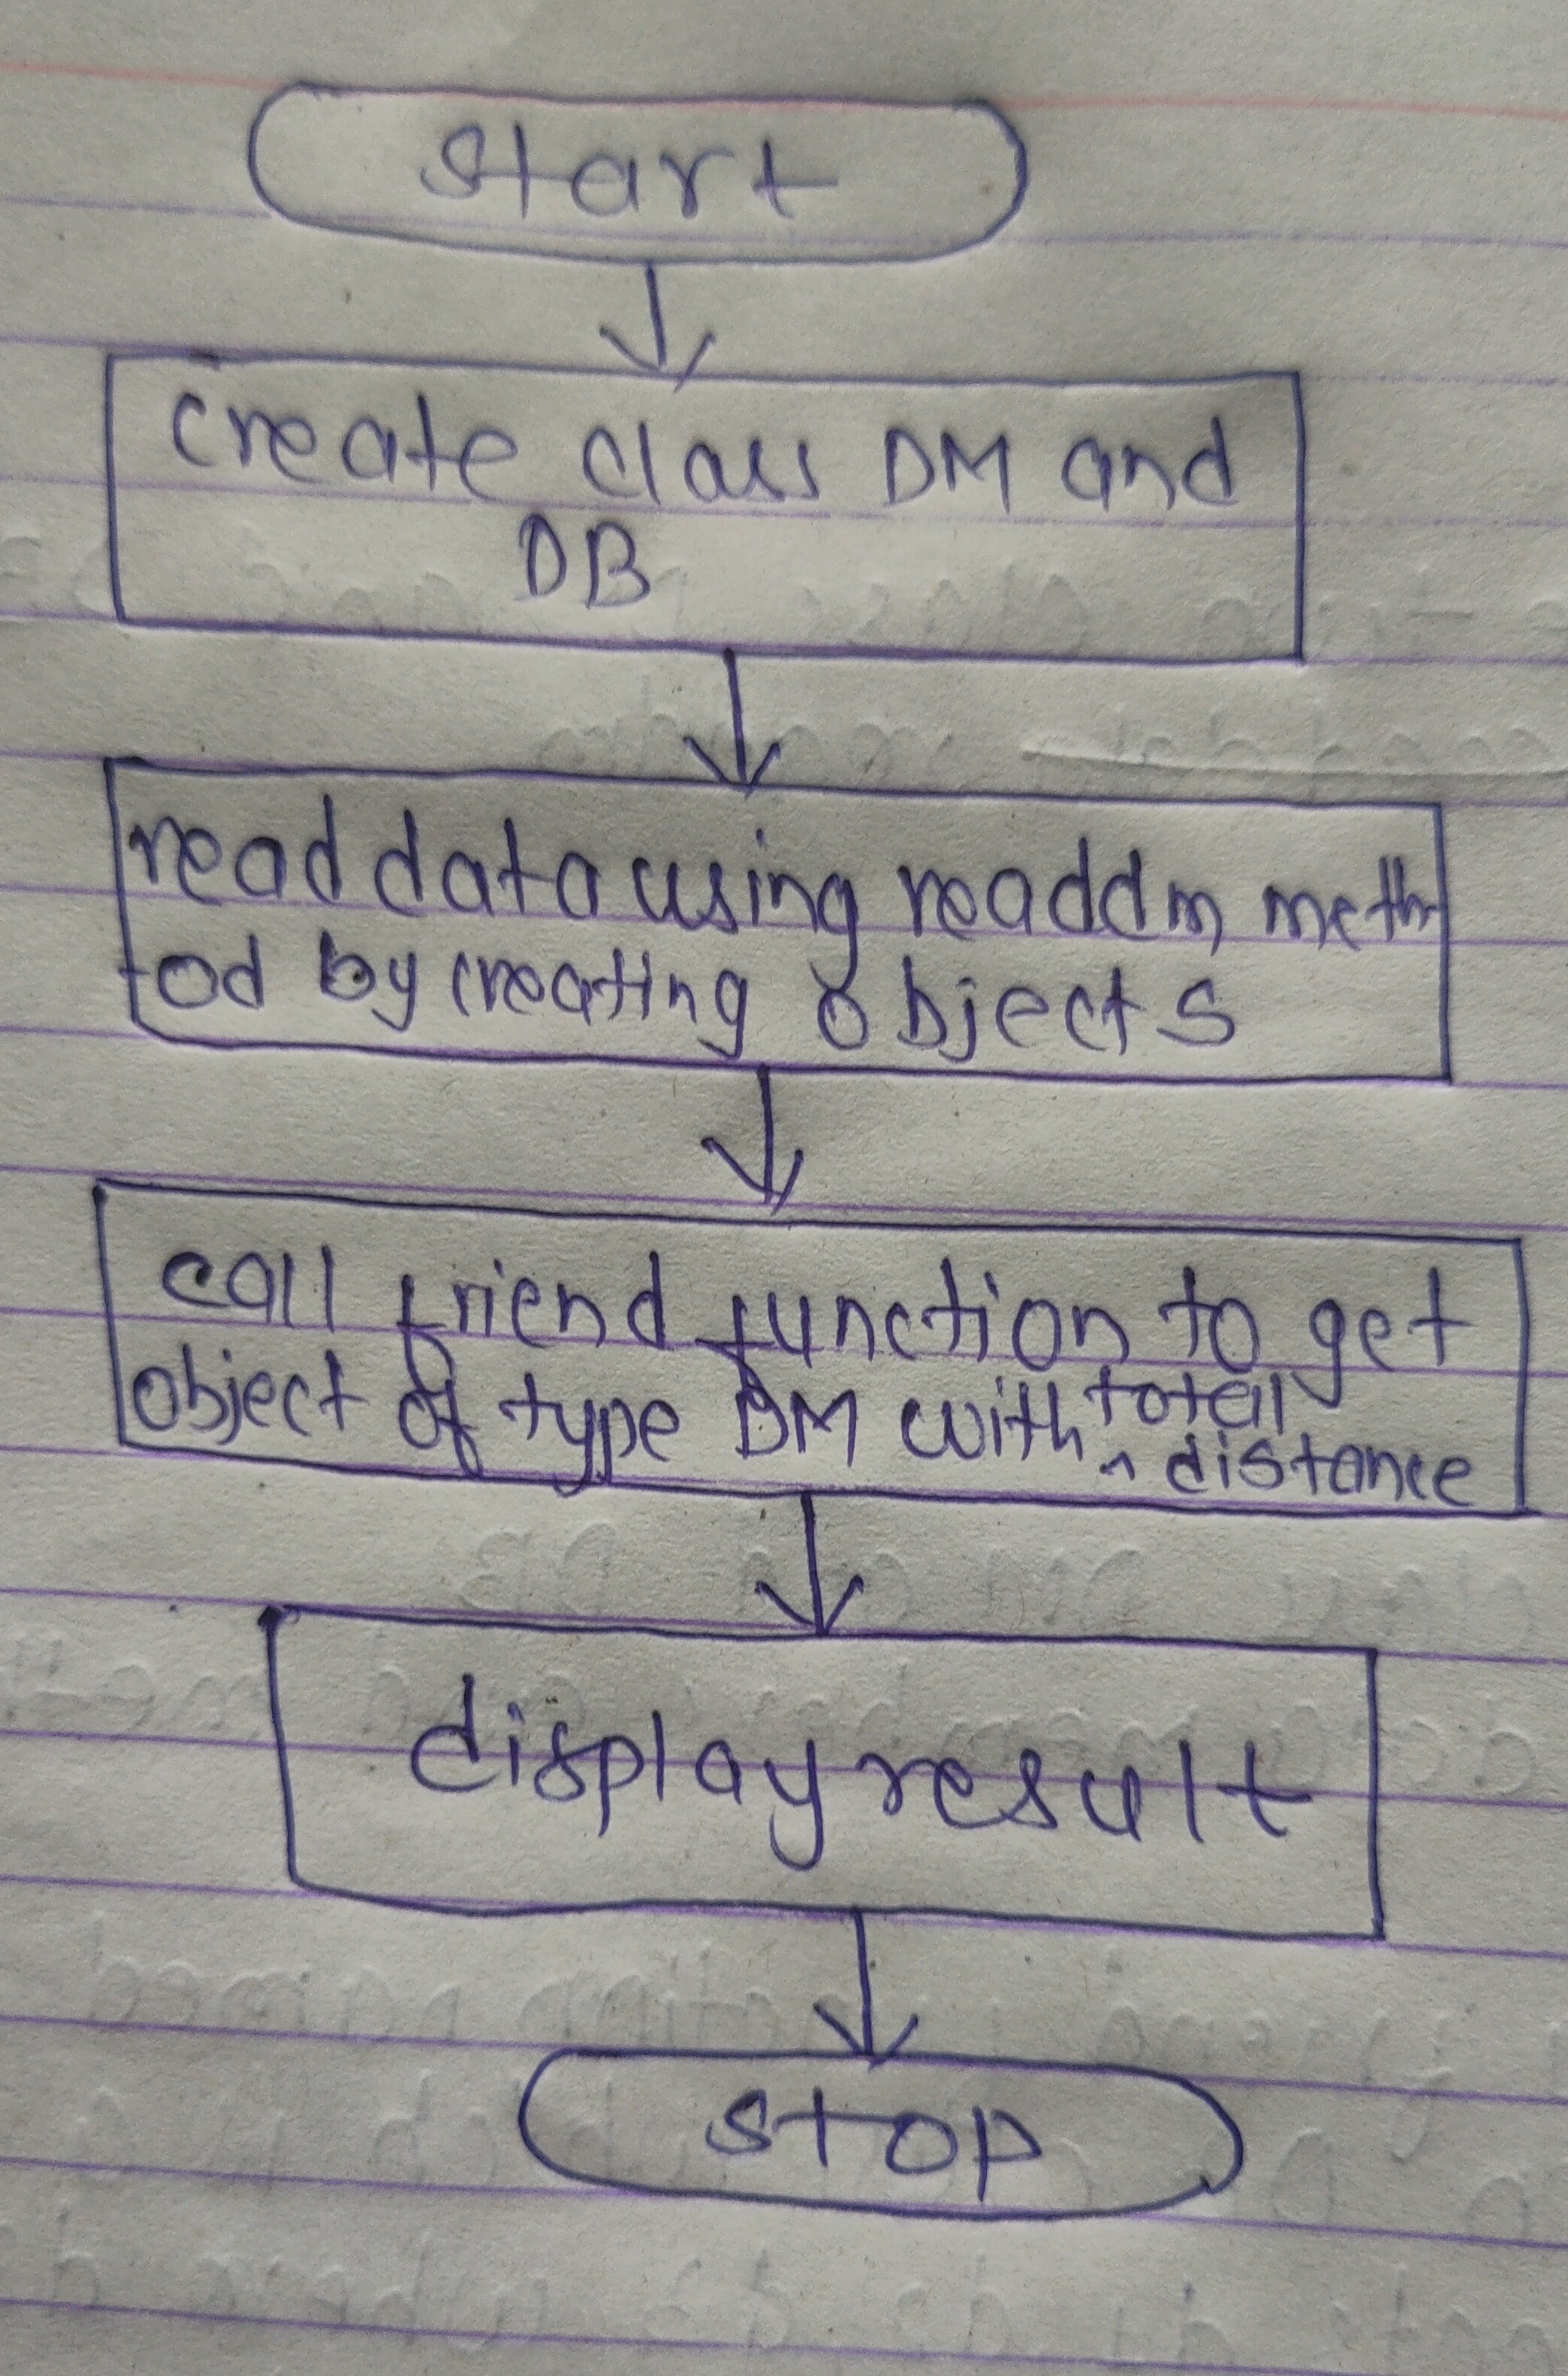 start
create class DM and
DB
read data using readdm meth
od by creating objects
call friend function to get
object of type DM with total distance
display result
stop